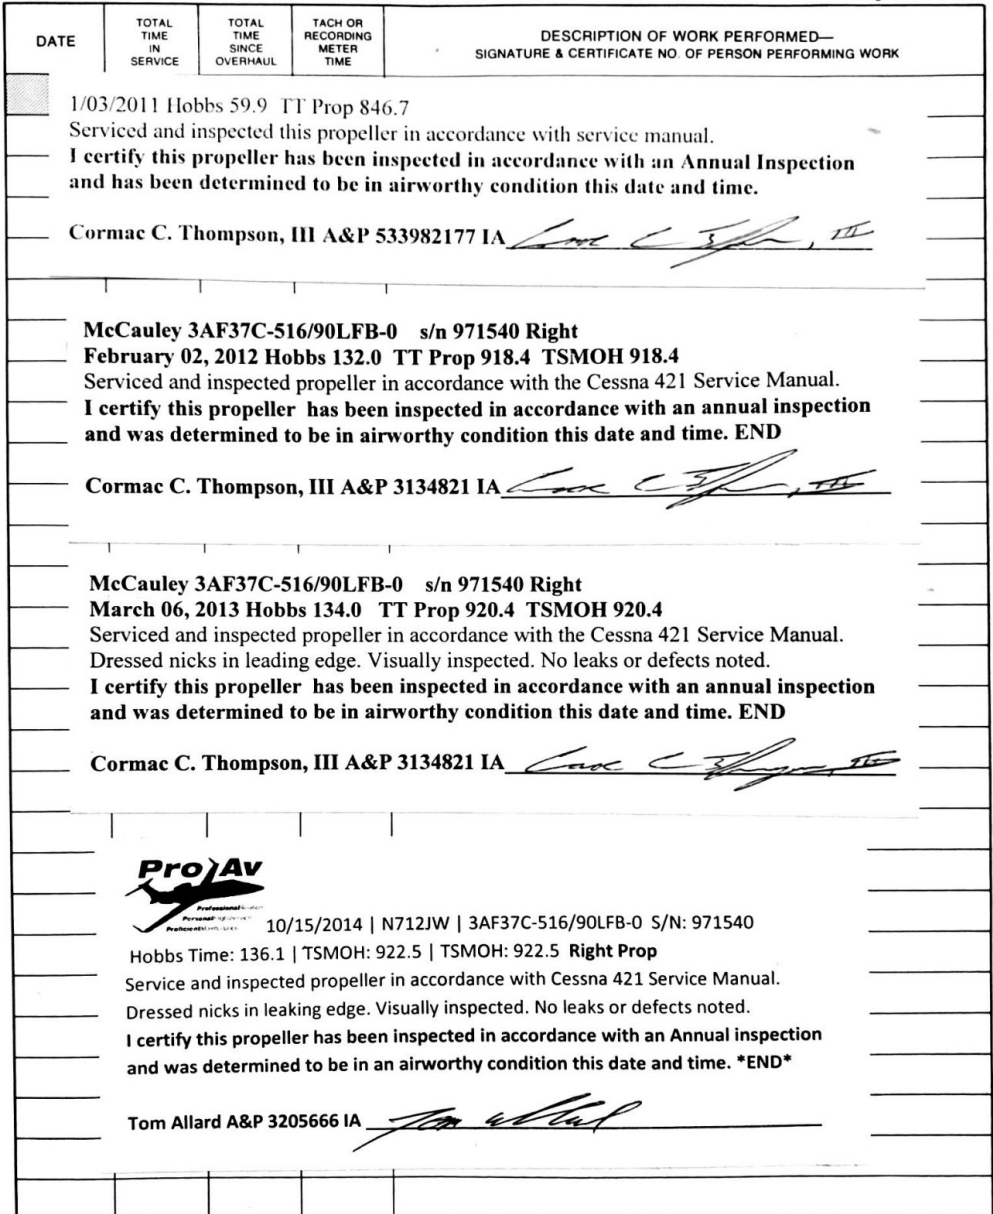 DATE
TOTAL TIME IN SERVICE
TOTAL TIME SINCE OVERHAUL
TACH OR RECORDING METER TIME
DESCRIPTION OF WORK PERFORMED—
SIGNATURE & CERTIFICATE NO. OF PERSON PERFORMING WORK
1/03/2011 Hobbs 59.9 TT Prop 846.7
Serviced and inspected this propeller in accordance with service manual.
I certify this propeller has been inspected in accordance with an Annual Inspection
and has been determined to be in airworthy condition this date and time.
Cormac C. Thompson, III A&P 533982177 IA
McCauley 3AF37C-516/90LFB-0 s/n 971540 Right
February 02, 2012 Hobbs 132.0 TT Prop 918.4 TSMOH 918.4
Serviced and inspected propeller in accordance with the Cessna 421 Service Manual.
I certify this propeller has been inspected in accordance with an annual inspection
and was determined to be in airworthy condition this date and time. END
Cormac C. Thompson, III A&P 3134821 IA
McCauley 3AF37C-516/90LFB-0 s/n 971540 Right
March 06, 2013 Hobbs 134.0 TT Prop 920.4 TSMOH 920.4
Serviced and inspected propeller in accordance with the Cessna 421 Service Manual.
Dressed nicks in leading edge. Visually inspected. No leaks or defects noted.
I certify this propeller has been inspected in accordance with an annual inspection
and was determined to be in airworthy condition this date and time. END
Cormac C. Thompson, III A&P 3134821 IA
Pro Av
10/15/2014 | N712JW | 3AF37C-516/90LFB-0 S/N: 971540
Hobbs Time: 136.1 | TSMOH: 922.5 | TSMOH: 922.5 Right Prop
Service and inspected propeller in accordance with Cessna 421 Service Manual.
Dressed nicks in leaking edge. Visually inspected. No leaks or defects noted.
I certify this propeller has been inspected in accordance with an Annual inspection
and was determined to be in an airworthy condition this date and time. *END*
Tom Allard A&P 3205666 IA